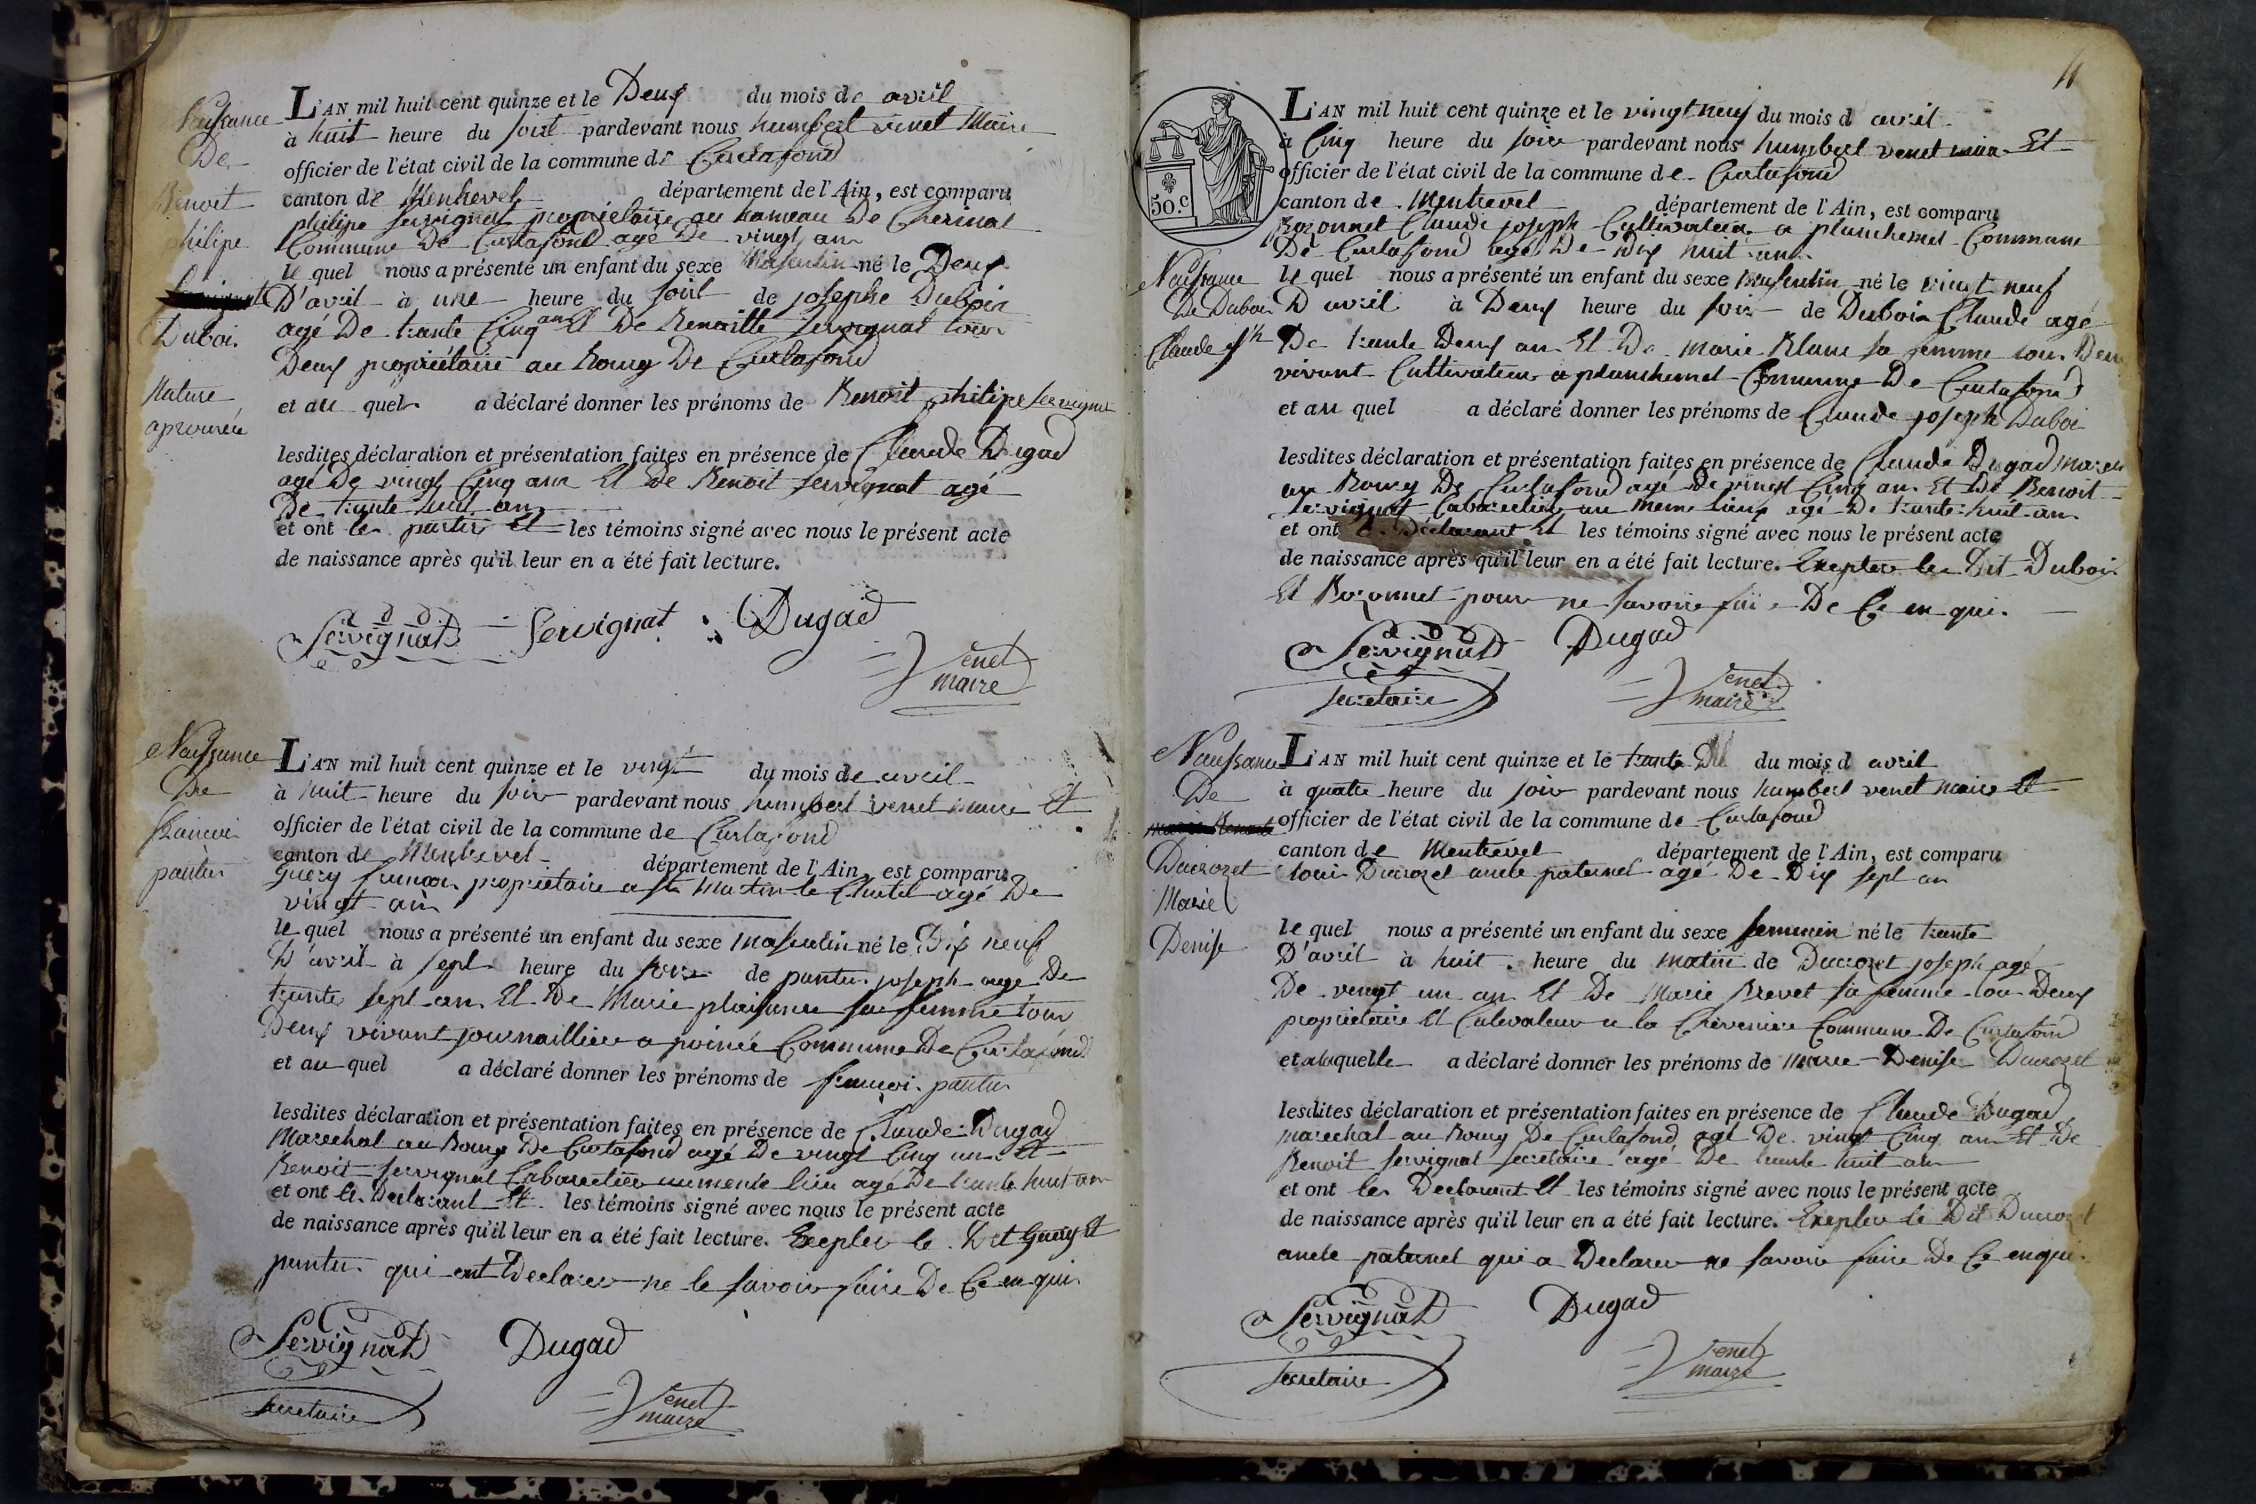 Naissance
De
Benoit
philipe
Dubois
Rature
aprouvée
L'AN mil huit cent quinze et le Deux du mois de avril
à huit heure du soir pardevant nous humbert venet Maire
officier de l'état civil de la commune de Curtafond
canton de Montrevel département de l'Ain, est comparu
philipe servignat propriétaire au hameau De Cherinal
Commune De Curtafond agé De vingt ans
le quel nous a présenté un enfant du sexe Masculin né le Deux
D'avril à une heure du soir de josephe Dubois
agé De trante Cinq ans Et De Benoitte servignat tous
Deux propriétaire au Bourg De Curtafond
et au quel a déclaré donner les prénoms de Benoit philipe servignat
lesdites déclaration et présentation faites en présence de Claude Dugad
agé De vingt Cinq ans Et De Benoit servignat agé
De trante huit ans
et ont les partis Et les témoins signé avec nous le présent acte
de naissance après qu'il leur en a été fait lecture.
Servignat Servignat Dugad
Venet
maire
Naissance
De
francois
pantin
L'AN mil huit cent quinze et le vingt du mois de avril
à huit heure du soir pardevant nous humbert venet maire Et
officier de l'état civil de la commune de Curtafond
canton de Montrevel département de l'Ain, est comparu
Guery francois propriétaire a st Martin le Chatel agé De
vingt ans
le quel nous a présenté un enfant du sexe masculin né le Dix neuf
D'avril à sept heure du soir de joseph agé De
trante sept ans Et De Marie plaisance sa femme tous
Deux vivant journaillier a Commune De Curtafond
et au quel a déclaré donner les prénoms de francois
lesdites déclaration et présentation faites en présence de Claude Dugad
Marechal au Bourg De Curtafond agé De vingt Cinq ans Et
Benoit servignat Cabaretier au meme lieu agé De trante huit ans
et ont le Declarant Et les témoins signé avec nous le présent acte
de naissance après qu'il leur en a été fait lecture. Excepter le Dit Guery Et
qui ont Declarer ne le savoir faire De Ce enquis
Servignat Dugad
secretaire
Venet
maire
11
50.c
Naissance
De Dubois
Claude jph
L'AN mil huit cent quinze et le vingt neuf du mois d avril
à Cinq heure du soir pardevant nous humbert venet maire Et
officier de l'état civil de la commune de Curtafond
canton de Montrevel département de l'Ain, est comparu
Bozonnet Claude joseph Cultivateur a planchemel Commune
De Curtafond agé De Dix huit ans
le quel nous a présenté un enfant du sexe masculin né le vingt neuf
D avril à Deux heure du soir de Dubois Claude agé
De trante Deux ans Et De marie Blanc sa femme tous Deux
vivant Cultivateur a planchemel Commune De Curtafond
et au quel a déclaré donner les prénoms de Claude joseph Dubois
lesdites déclaration et présentation faites en présence de Claude Dugad
au Bourg De Curtafond agé De vingt Cinq ans Et De Benoit
servignat Cabaretier au meme lieu agé De trante huit ans
et ont le Declarant Et les témoins signé avec nous le présent acte
de naissance après qu'il leur en a été fait lecture. Excepter les Dit Dubois
Et Bozonnet pour ne savoir faire De Ce enquis
Servignat Dugad
secretaire
Venet
maire
Naissance
De
Ducrozet
Marie
Denise
L'AN mil huit cent quinze et le trante du mois d avril
à quatre heure du soir pardevant nous humbert venet maire Et
officier de l'état civil de la commune de Curtafond
canton de Montrevel département de l'Ain, est comparu
louis Ducrozet oncle paternel agé De Dix sept ans
le quel nous a présenté un enfant du sexe feminin né le trante
D'avril à huit heure du matin de Ducrozet joseph agé
De vingt un ans Et De Marie Brevet sa femme tous Deux
propriétaire Et Culevateur a la Commune De Curtafond
et a laquelle a déclaré donner les prénoms de marie Denise Ducrozet
lesdites déclaration et présentation faites en présence de Claude Dugad
marechal au Bourg De Curtafond agé De vingt Cinq ans Et De
Benoit servignat secretaire agé De trante huit ans
et ont les Declarant Et les témoins signé avec nous le présent acte
de naissance après qu'il leur en a été fait lecture. Excepter le Dit Ducrozet
oncle paternel qui a Declarer ne savoir faire De Ce enquis
Servignat Dugad
secretaire
Venet
maire